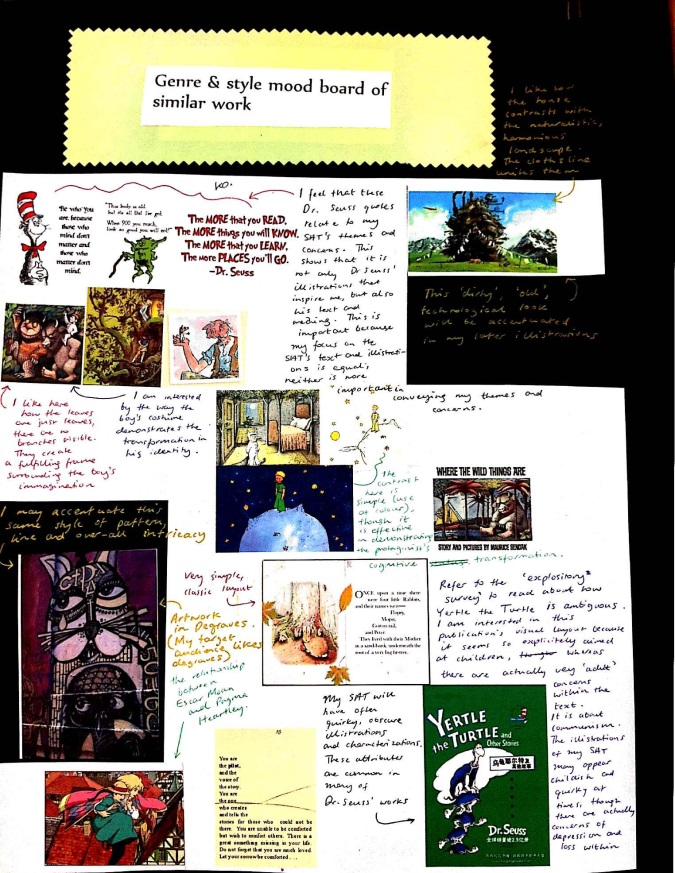 Genre & style mood board of
similar work
I like how
the house
contrasts with
the naturalistic,
harmonious
landscape.
The clothsline
unites them
"Be who You
are, because
those who
mind don't
matter and
those who
matter don't
mind.
"This body is old.
When 900 you reach,
look as good you will not!"
The MORE that you READ,
The MORE things you will KNOW.
The MORE that you LEARN,
The more PLACES you'll GO.
-Dr. Seuss
I feel that these
Dr. Seuss quotes
relate to my
SAT's themes and
concerns. This
shows that it is
not only Dr Seuss'
illustrations that
inspire me, but also
his text and
This is
important because
my focus on the
SAT's text and illustrati-
ons is equal,
neither is more
important in
conveying my themes and
concerns.
This 'dirty', 'old',
technological look
will be accentuated
in my later illustrations
I like here
how the leaves
are just leaves,
there are no
branches visible.
They create
a fulfilling frame
surrounding the boy's
immagination
I am interested
by the way the
boy's costume
demonstrates the
transformation in
his identity.
The
contrast
here is
simple (use
of colour),
though it
is effective
in demonstrating
the protagonist's
cognitive
transformation.
WHERE THE WILD THINGS ARE
STORY AND PICTURES BY MAURICE SENDAK
I may accentuate this
same style of pattern,
line and over-all intricacy
Very simple,
classic layout
ONCE upon a time there
were four little Rabbits,
and their names were—
Flopsy,
Mopsy,
Cotton-tail,
and Peter.
They lived with their Mother
in a sand-bank, underneath the
root of a very big fir-tree.
Refer to the "explository"
survey to read about how
Yertle the Turtle is ambiguous.
I am interested in this
publication's visual layout because
it seems so explicitly aimed
at children, whereas
there are actually very 'adult'
concerns
within the
text.
It is about
communism.
The illustrations
of my SAT
may appear
childish and
quirky at
times, though
there are actually
concerns of
depression and
loss within
Artwork
in Degraves.
(My target
audience likes
degraves)
the relationship
between
and
My SAT will
have often
quirky, obscure
illustrations
and characterizations.
These attributes
are common in
many of
Dr. Seuss' works
You are
the pilot,
and the
voice of
the story.
You are
the one
who creates
and tells the
stories for those who could not be
there. You are unable to be comforted
but wish to comfort others. There is a
great something missing in your life.
Do not forget that you are much loved.
Let your sorrow be comforted . . .
YERTLE
THE TURTLE and
Other Stories
乌龟耶尔特及
其他故事
Dr. Seuss